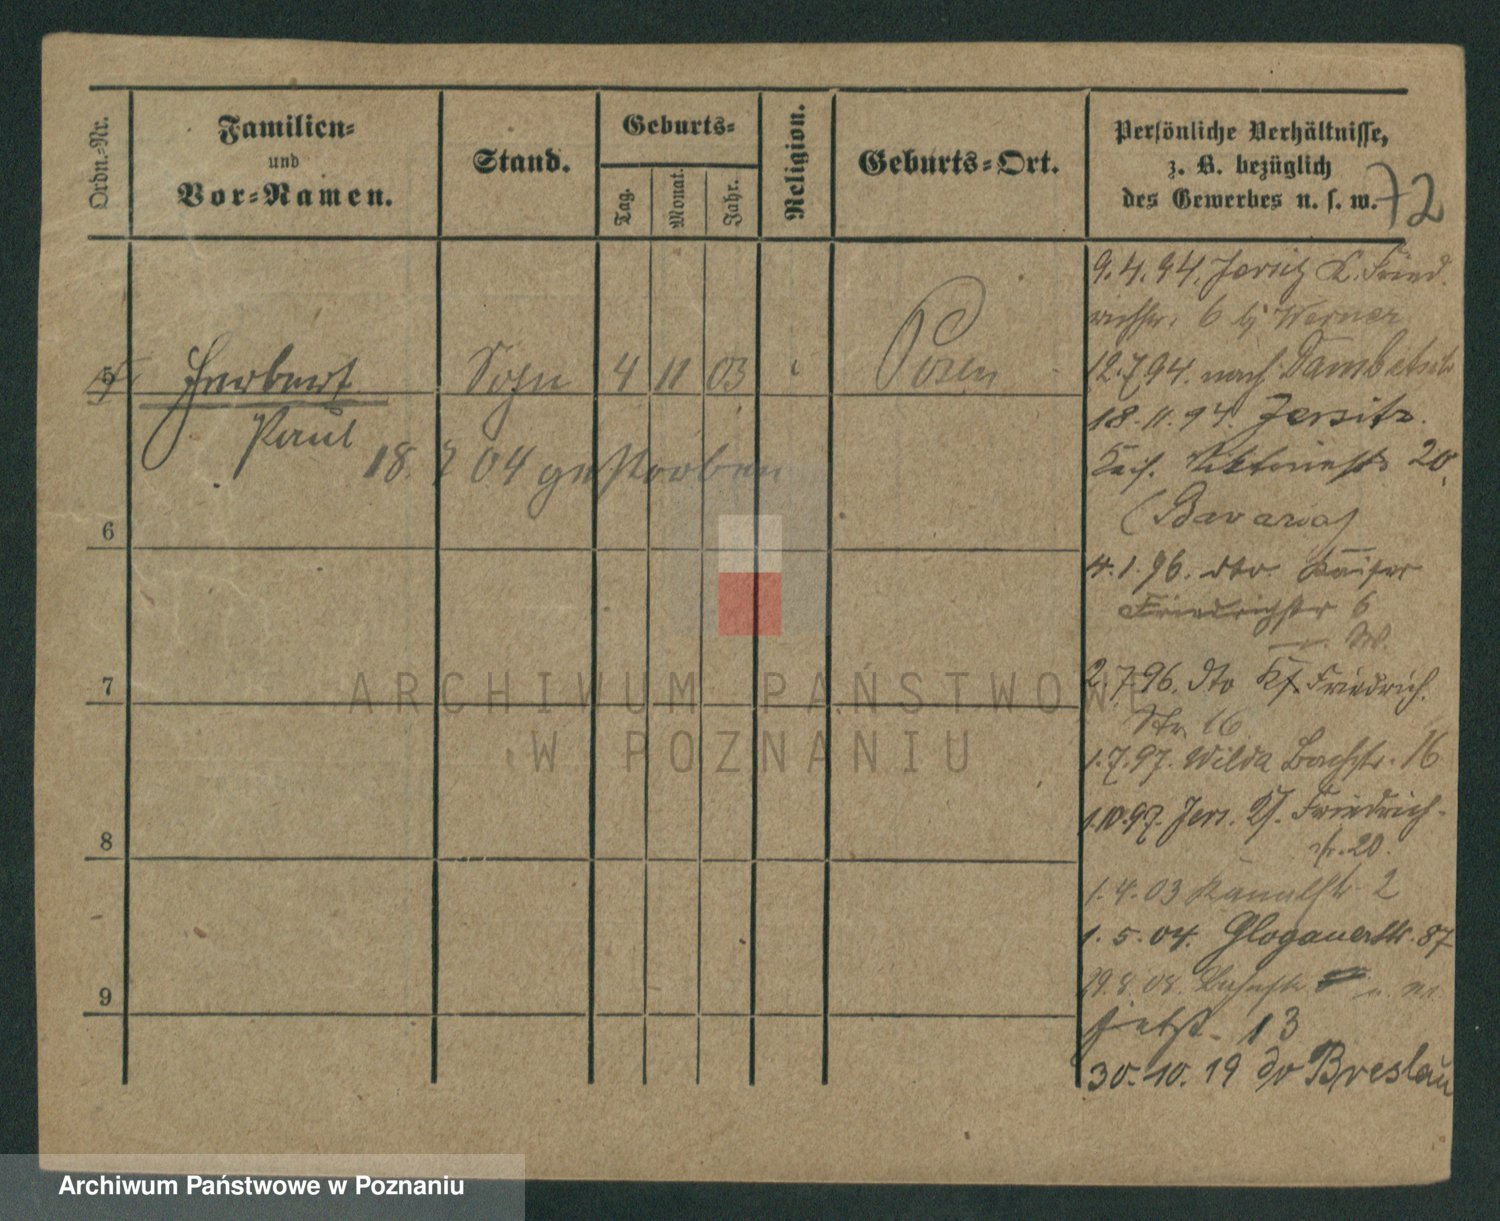 Ordn.-Nr.
Familien-
und
Vor-Namen.
Stand.
Geburts-
Tag.
Monat.
Jahr.
Religion.
Geburts-Ort.
Persönliche Verhältnisse,
z. B. bezüglich
des Gewerbes u. s. w.
72
5 Herbert Sohn 4 11 03 Posen
Paul
18. 7 04 gestorben
6
7
8
9
9.4.94. Jersitz K. Fried
richstr. 6 bj Werner
12.7.94. nach
18.11.94. Jersitz.
Kais. Viktoriastr 20,
(Bavaria)
4.1.96. dto. Kaiser
Friedrichstr 6
W.
2.7.96. dto Kf Friedrich.
Str. 16
1.7.97. Wilda Bachstr. 16
1.10.97. Jers. Kf. Friedrich-
str. 20.
1.4.03 Kanalstr 2
1.5.04. Glogauerstr. 87
29.8.08.
jetzt 13
30.10.19 Breslau
ARCHIWUM PAŃSTWOWE
W POZNANIU
Archiwum Państwowe w Poznaniu